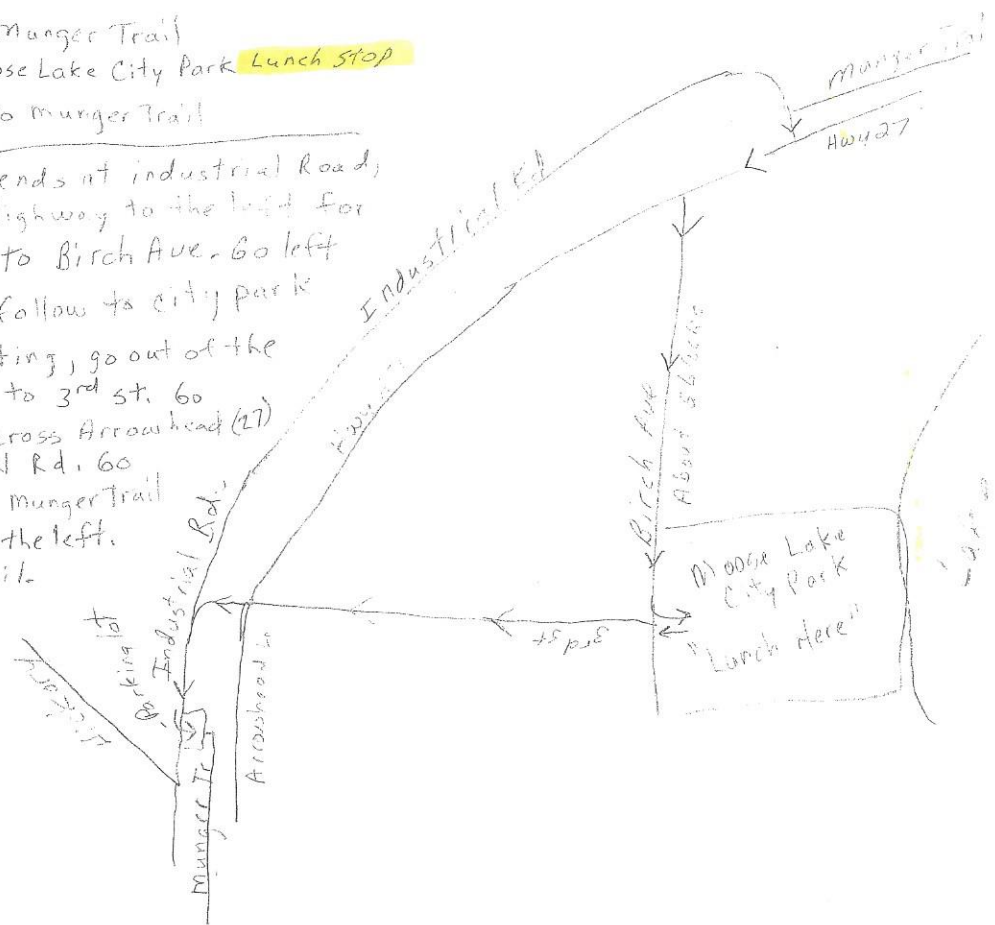 Munger Trail
ose Lake City Park Lunch Stop
o Munger Trail
ends at industrial Road,
ighway to the left for
to Birch Ave. Go left
follow to city park
ting, go out of the
to 3rd st. Go
cross Arrowhead (27)
Rd. Go
Munger Trail
the left.
il.
Munger Trail
Hwy 27
Industrial Rd
Hwy 27
Birch Ave
About
Moose Lake
City Park
"Lunch Here"
3rd st
Industrial Rd.
Parking lot
Arrowhead Ln
Munger Tr